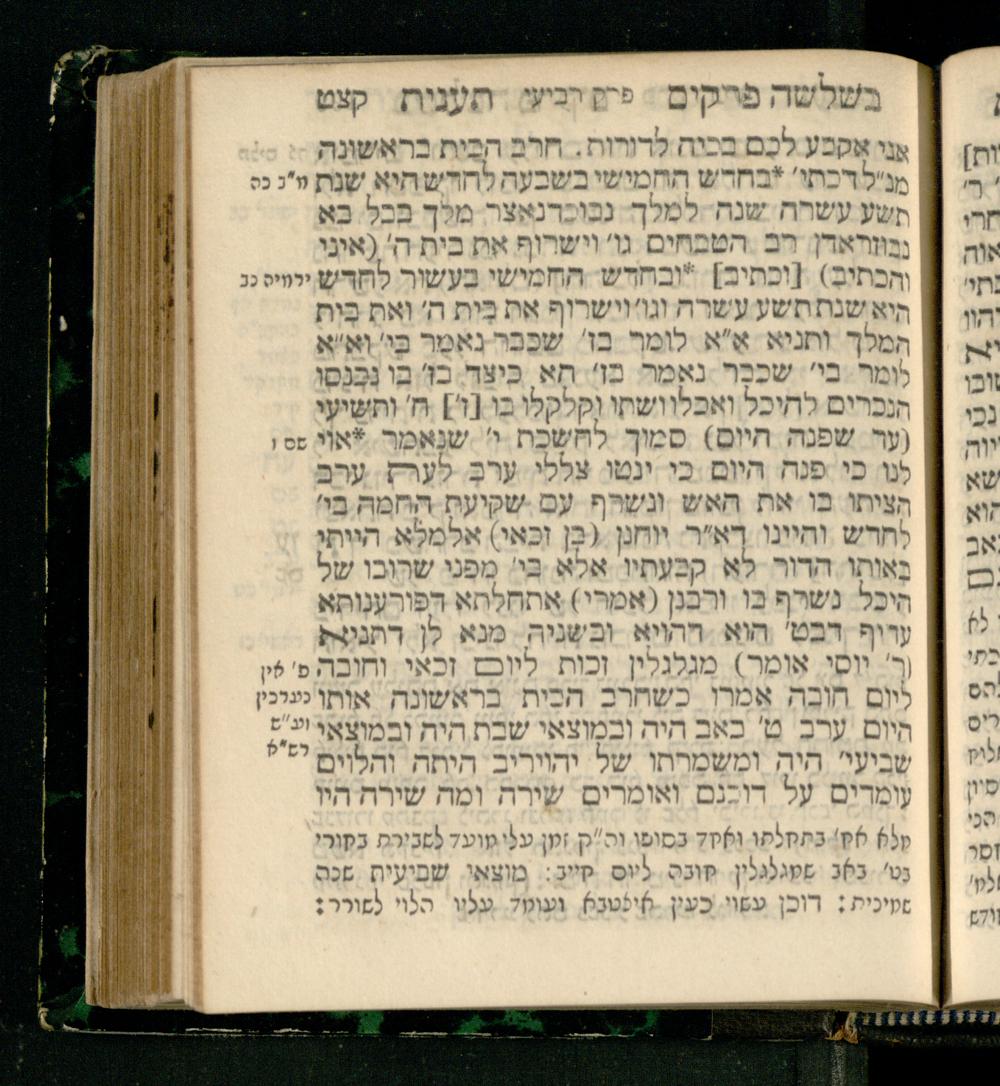 בשלשה פרקים פרק רביעי תענית קצט
אני אקבע לכם בכיה לדורות. חרב הבית בראשונה
מנ״ל דכתי׳ *בחדש החמישי בשבעה לחדש היא שנת
מ״ב כה
תשע עשרה שנה למלך נבוכדנאצר מלך בבל בא
נבוזראדן רב הטבחים גו׳ וישרוף את בית ה׳ (איני
והכתיב) [וכתיב] *ובחדש החמישי בעשור לחדש
ירמיה נב
היא שנת תשע עשרה וגו׳ וישרוף את בית ה׳ ואת בית
המלך ותניא א״א לומר בז׳ שכבר נאמר בי׳ וא״א
לומר בי׳ שכבר נאמר בז׳ הא כיצד בז׳ בו נכנסו
הנכרים להיכל ואכלו ושתו וקלקלו בו [ז׳] ח׳ ותשיעי
(עד שפנה היום) סמוך לחשכת י׳ שנאמר *אוי
שם ו
לנו כי פנה היום כי ינטו צללי ערב לערת ערב
הציתו בו את האש ונשרף עם שקיעת החמה בי׳
לחדש והיינו דא״ר יוחנן (בן זכאי) אלמלא הייתי
באותו הדור לא קבעתיו אלא בי׳ מפני שרובו של
היכל נשרף בו ורבנן (אמרי) אתחלתא דפורענותא
עדיף דבט׳ הוא דהויא ובשניה מנא לן דתניא
(ר׳ יוסי אומר) מגלגלין זכות ליום זכאי וחובה
פ׳ אין
ליום חובה אמרו כשחרב הבית בראשונה אותו
נערכין
היום ערב ט׳ באב היה ובמוצאי שבת היה ובמוצאי
וע״ש
רש״א
שביעי׳ היה ומשמרתו של יהויריב היתה והלוים
עומדים על דוכנם ואומרים שירה ומה שירה היו
מלא אח׳ בתחלתו ואחד בסופו וה״ק זמן עלי מועד לשבירת בחורי
בט׳ באב שמגלגלין חובה ליום חייב: מוצאי שביעית שנה
שמינית: דוכן עשוי כעין איצטבא ועומד עליו הלוי לשורר: